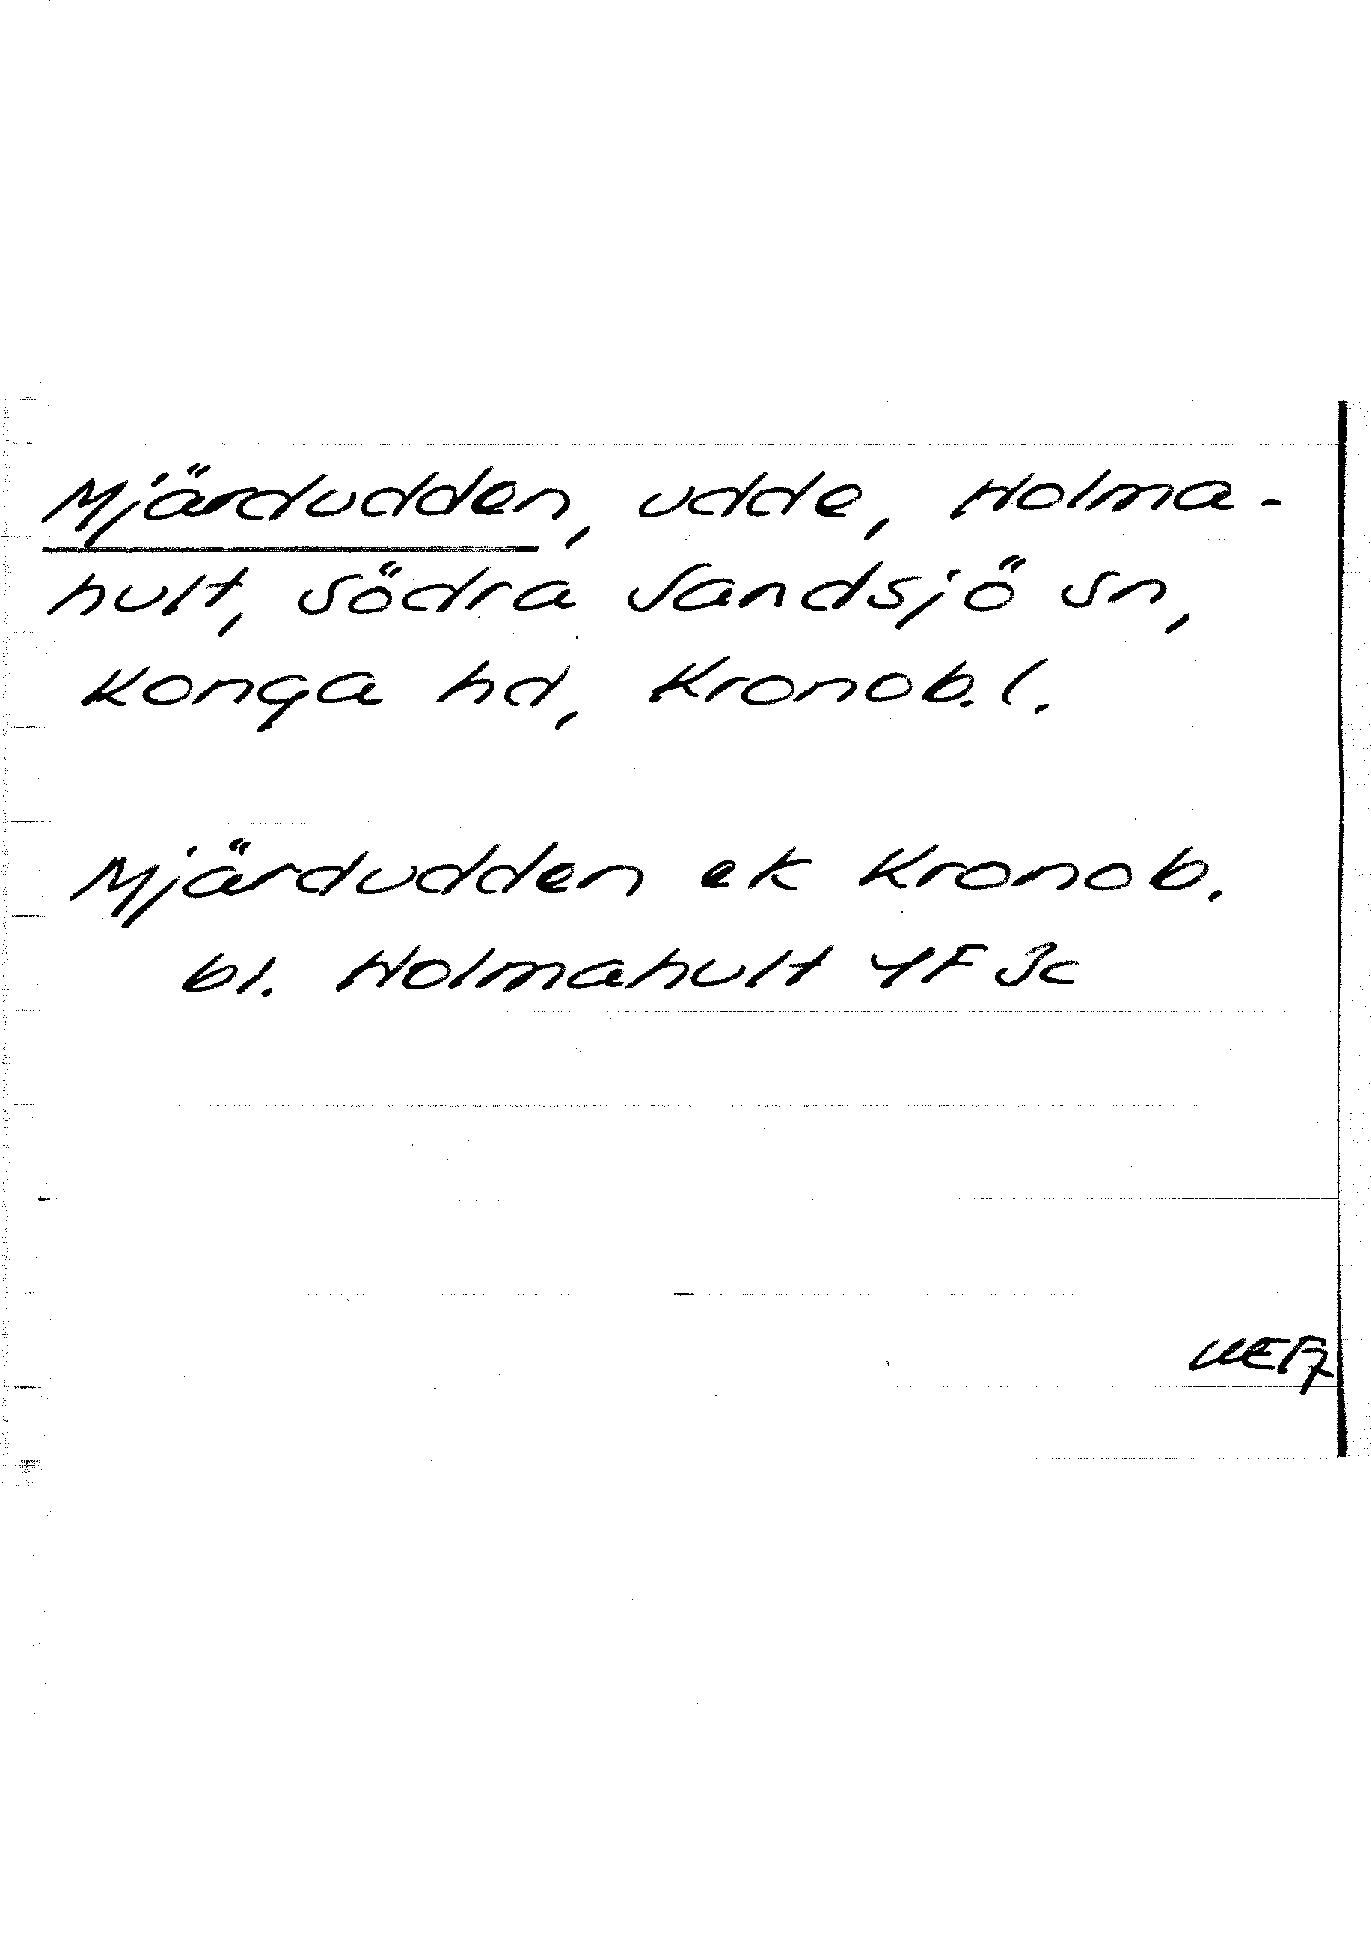 Mjärdudden, udde, Holma-
hult, Södra Sandsjö sn,
Konga hd, Kronob. l.
Mjärdudden ek Kronob.
bl. Holmahult 4F 3c